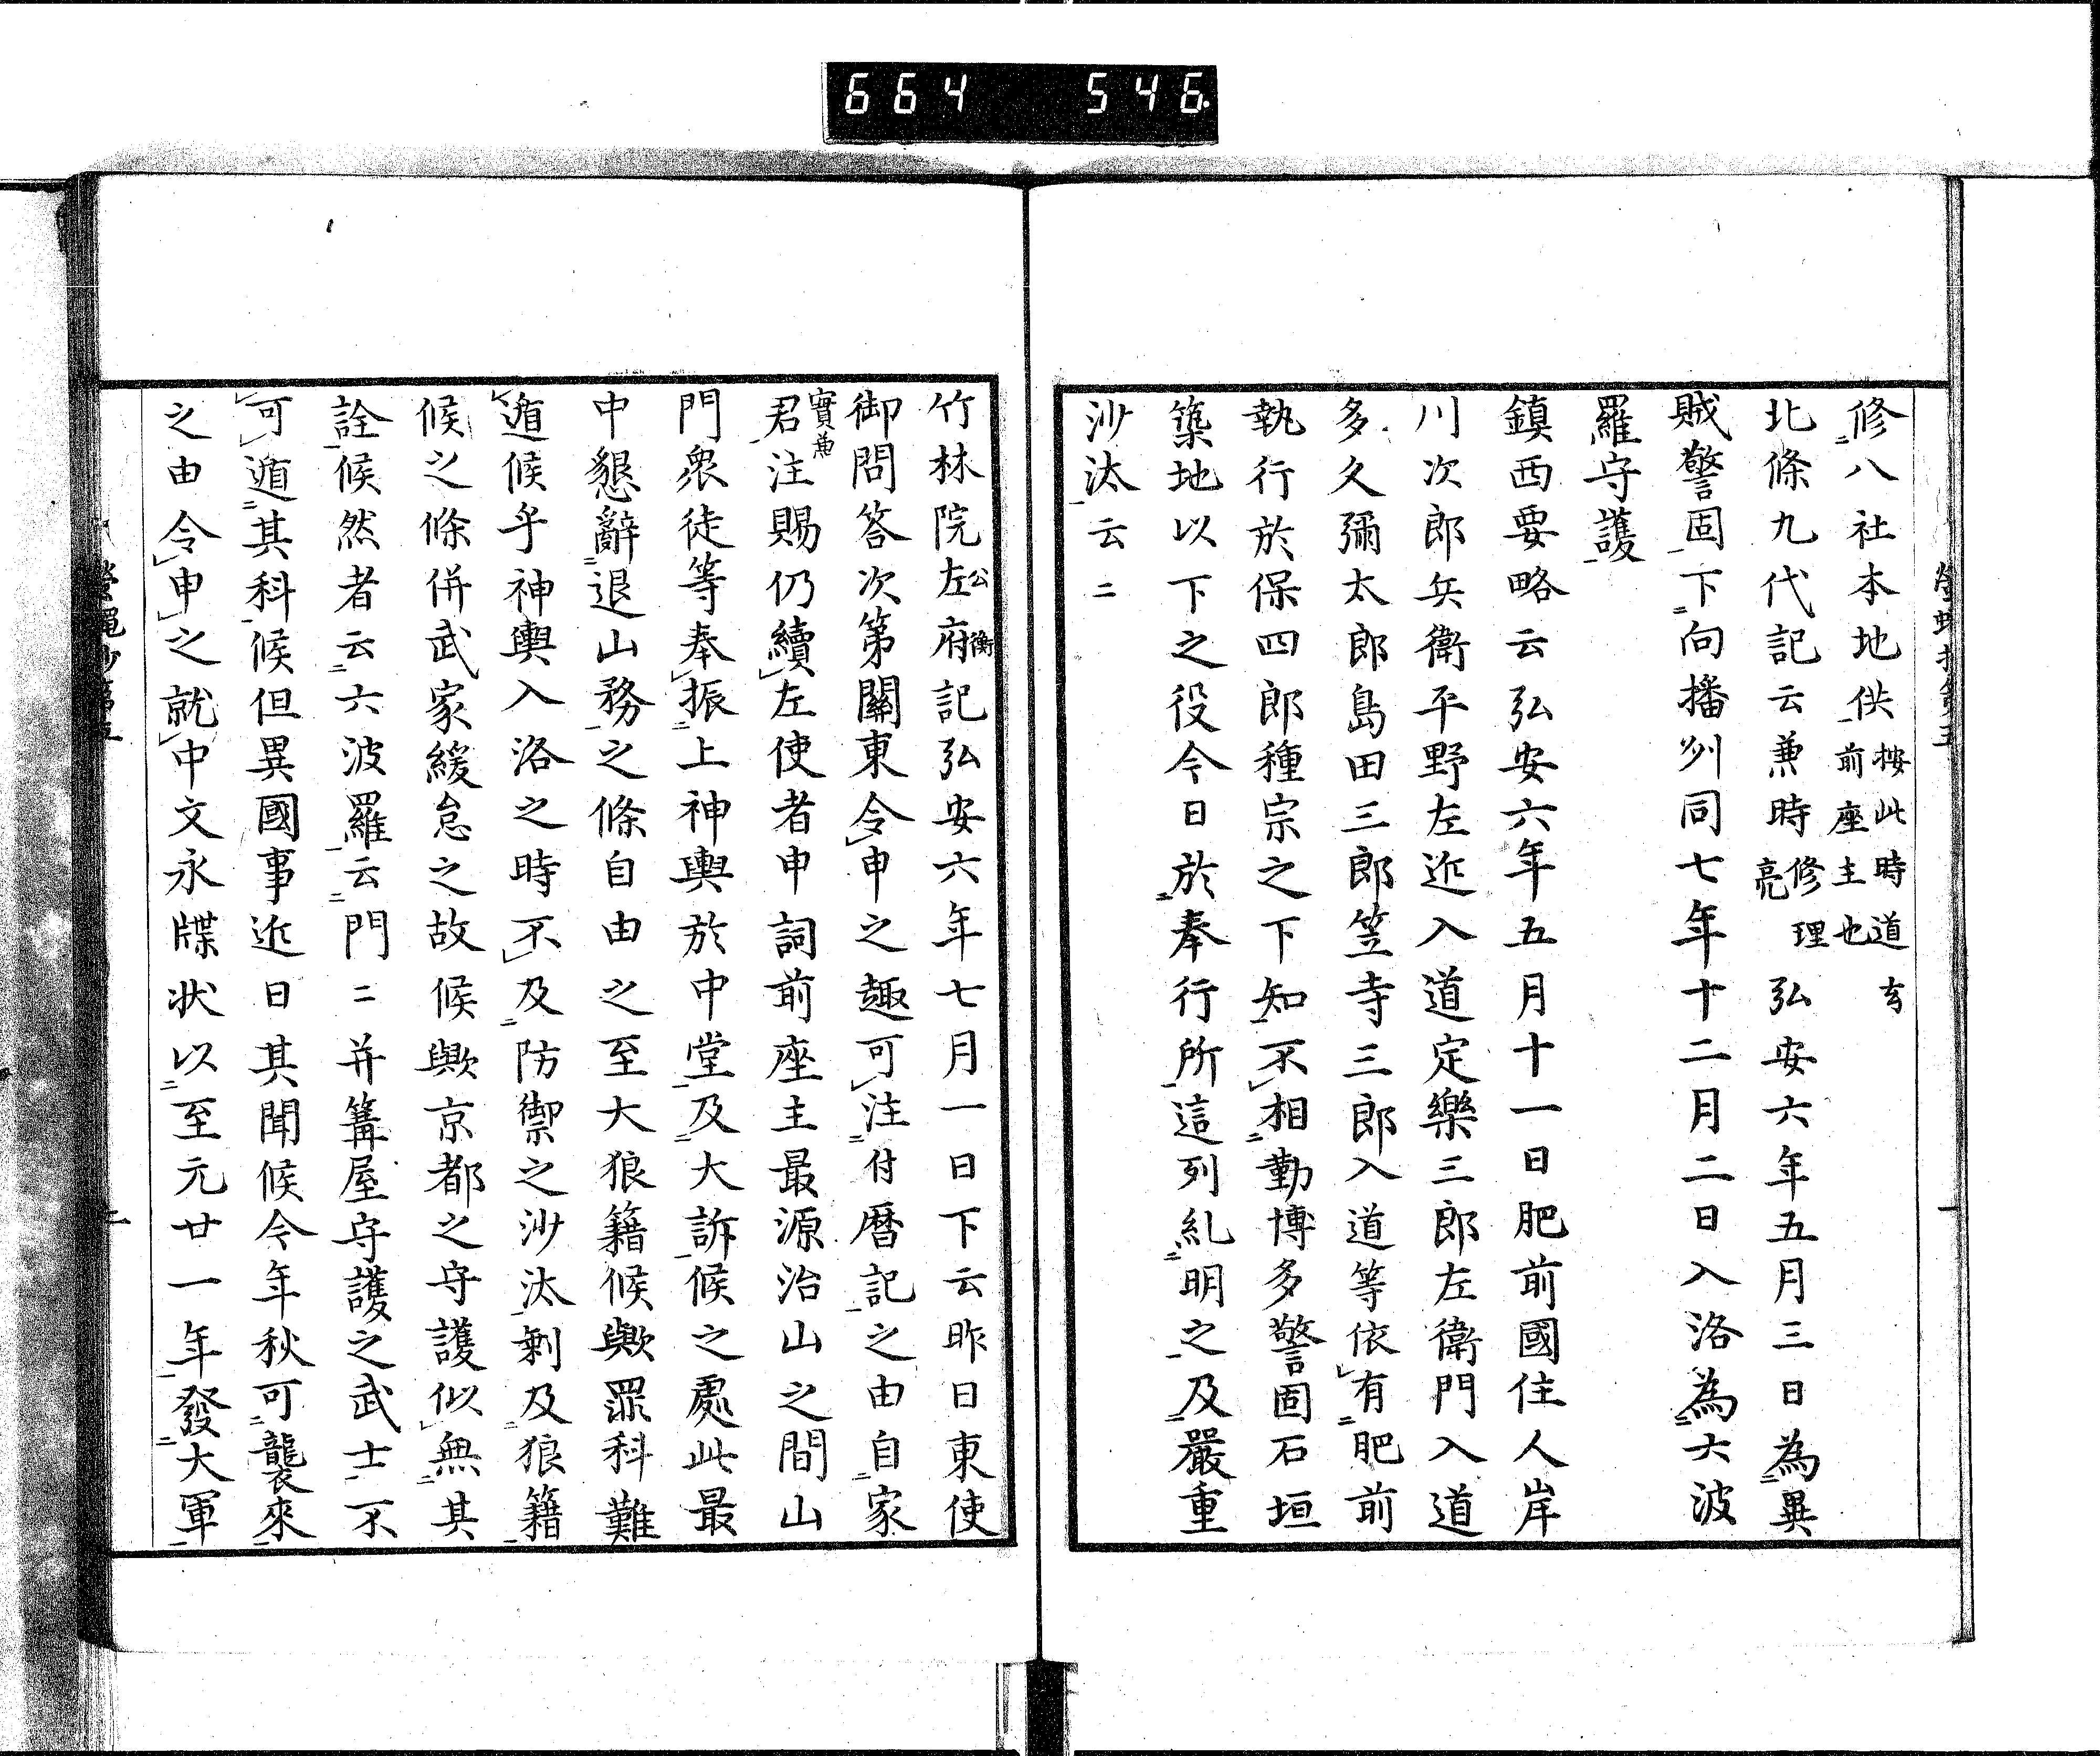 664 546
修八社本地供按此時道玄前座主也
北條九代記云兼時修理亮弘安六年五月三日為異
賊警固下向播州同七年十二月二日入洛為六波
羅守護
鎮西要略云弘安六年五月十一日肥前國住人岸
川次郎兵衛平野左近入道定樂三郎左衛門入道
多久彌太郎島田三郎笠寺三郎入道等依有肥前
執行於保四郎種宗之下知不相勤博多警固石垣
築地以下之役今日於奉行所這列糺明之及嚴重
沙汰云〻
竹林院左府公衡記弘安六年七月一日下云昨日東使
御問答次第關東令申之趣可注付暦記之由自家
君實兼注賜仍續左使者申詞前座主最源治山之間山
門衆徒等奉振上神輿於中堂及大訴候之處此最
中懇辭退山務之條自由之至大狼籍候歟罪科難
遁候乎神輿入洛之時不及防禦之沙汰剰及狼籍
候之條併武家緩怠之故候歟京都之守護似無其
詮候然者云六波羅云門〻并篝屋守護之武士不
可遁其科候但異國事近日其聞候今年秋可襲來
之由令申之就中文永牒状以至元廿一年發大軍